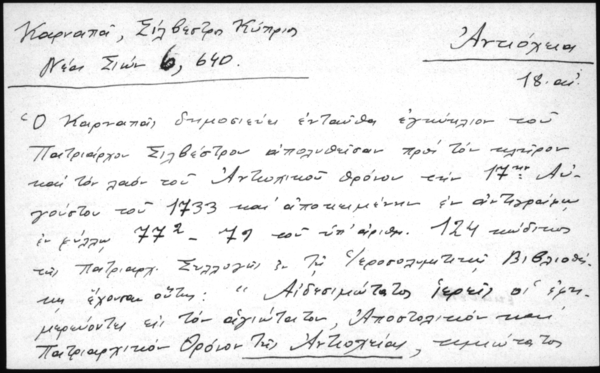 Καρναπᾶ, Σίλβεστρος Κύπριος
Νέα Σιών 6, 640.
Ἀντιόχεια
18. αἰ.
Ὁ Καρναπᾶς δημοσιεύει ἐνταῦθα ἐγκύκλιον τοῦ
Πατριάρχου Σιλβέστρου ἀπολυθεῖσαν πρὸς τὸν κλῆρον
καὶ τὸν λαὸν τοῦ Ἀντιοχικοῦ θρόνου τὴν 17ην Αὐ-
γούστου τοῦ 1733 καὶ ἀποκειμένην ἐν ἀντιγράφῳ
ἐν φύλλῳ 77² - 79 τοῦ ὑπ' ἀριθμ. 124 κώδικος
τῆς Πατριαρχ. Συλλογῆς ἐν τῇ Ἱεροσολυμιτικῇ Βιβλιοθή-
κῃ ἔχουσαν οὕτως: " Αἰδεσιμώτατοι ἱερεῖς οἱ ἐφη-
μερεύοντες εἰς τὸν ἁγιώτατον, Ἀποστολικὸν καὶ
Πατριαρχικὸν Θρόνον τῆς Ἀντιοχείας, τιμιώτατοι